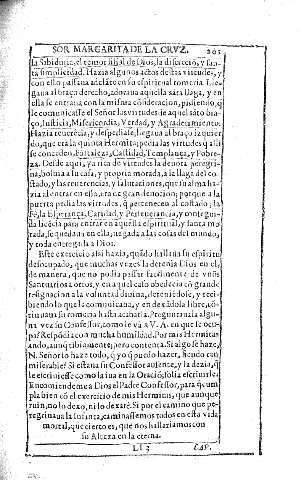 SOR MARGARITA DE LA CRVZ. 265
la Sabiduria, el temor filial de Dios, la discreció, y san-
ta simplicidad. Hazia algunos actos destas virtudes, y
con esto passaua adelãte en su espiritual romeria. Lle-
gaua al braço derecho, adoraua aquella sãta llaga, y en
ella se entraua con la misma cõsideracion, pidiendo, q̃
le comunicasse el Señor las virtudes de aquel sãto bra-
ço, Iusticia, Misericordia, Verdad, y Agradecimiento.
Hazia reuerécia, y despediase, llegaua al braço izquier
do, que era la quinta Hermita; pedia las virtudes q̃ allí
se conceden, Fortaleza, Castidad, Templança, y Pobre-
za. Desde aqui, ya rica de virtudes la deuota peregri-
na, boluia a su casa, y propria morada, a la llaga del co-
stado, y las reuerencias, y salutaciones, que su alma ha-
zia al entrar en ella, era de gran deuocion; porque a la
puerta pedia las virtudes, q̃ pertenecen al costado; la
Fè, la Esperança, Caridad, y Perseuerancia, y conseguí-
da licécia para entrar en aquella espiritual, y santa mo
rada, se quedaua en ella, negada a las cosas del mundo,
y toda entregada a Dios.
Este exercicio assi hazia, quãdo hallaua su espiritu
desocupado, que muchas vezes la detenia Dios en el,
de manera, que no podia passar facilmente de vnos
Santuarios a otros, y en aquel caso obedecia cõ grande
resignacion a la voluntad diuina, deteniédose, y reci-
biendo lo que le comunicaua, y en dexãdola libre, cõ-
tinuaua su romeria hasta acabarla. Preguntauala algu-
na vez su Confessor, como le và a V. A. en que se ocu-
pa? Respõdia con mucha humildad. Por mis Hermitas
ando, aunq̃ tibiamente; pero contenta. Si algo se haze,
N. Señor lo haze todo, q̃ yo q̃ puedo hazer, siendo tan
miserable? Si estaua su Confessor ausente, y la dezia, q̃
le escriuiesse como la iua en la Oració; solia escriuirle:
Encomiendeme a Dios el Padre Confessor, para q̃ cum
pla bien cõ el exercicio de mis Hermitas, que aunque
ruin, no lo dexo, ni lo dexaré. Si por el camino que pe-
regrinò su Infanta, caminassemos todos en esta vida
mortal, que cierto es, que nos hallariamos con
su Alteza en la eterna.
Ll 3 CAP.